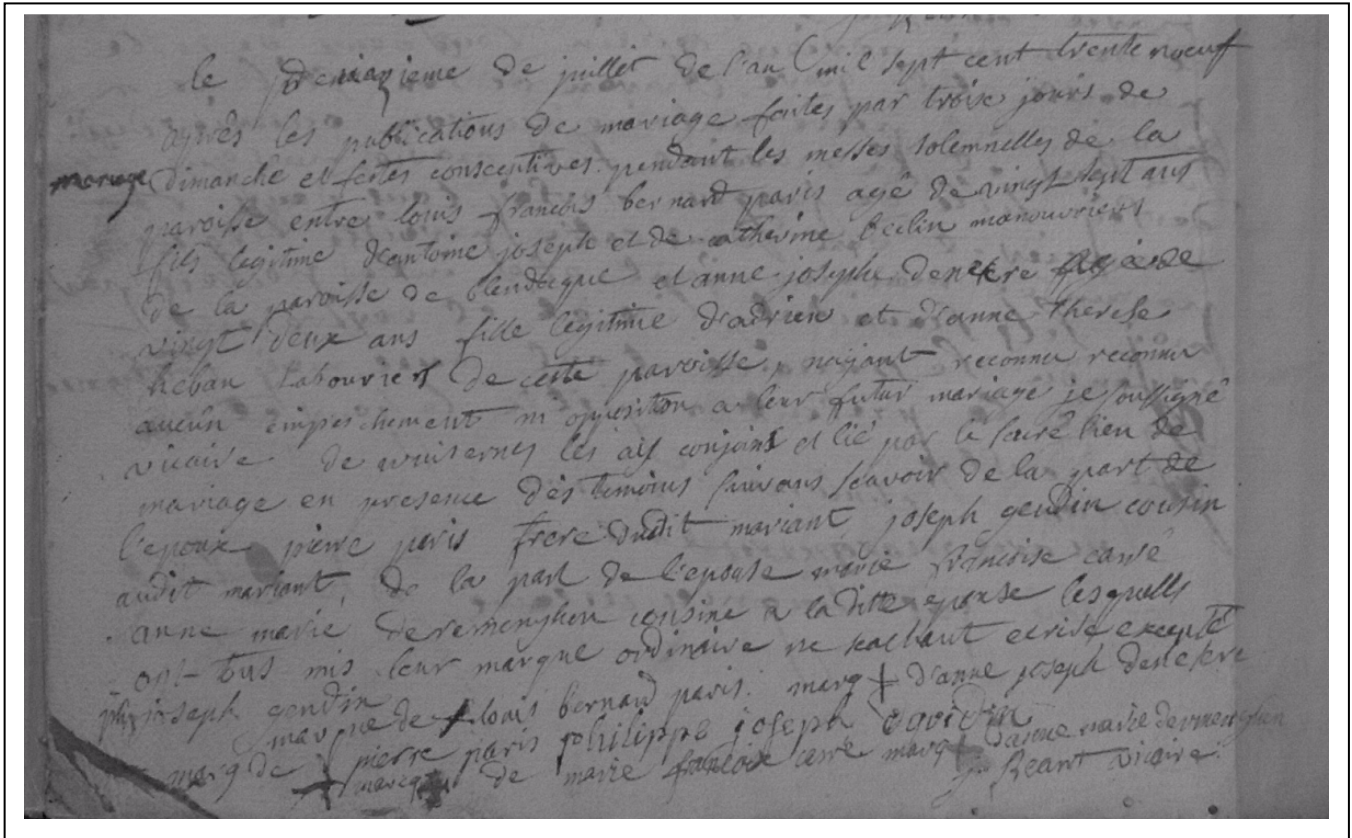 le deuxzieme de juillet de l'an mil sept cent trente noeuf
après les publications de mariage faites par trois jours de
mariage
dimanche et festes consecutives pendant les messes solemnelles de la
paroisse entre louis françois bernard paris agé de vingt sept ans
fils legitime d'antoine joseph et de catherine beclin manouvriers
de la paroisse de blendecque et anne joseph denekre agée de
vingt deux ans fille legitime d'adrien et d'anne therese
heban labouriers de ceste paroisse, nayant reconnu reconnu
aucun empeschement ni oppositon a leur futur mariage je soussigné
vicaire de wisernes les ais conjoins et lié par le sacré lien de
mariage en presence des temoins suivans scavoir de la part de
l'epoux pierre paris frere dudit mariant, joseph gendin cousin
audit mariant, de la part de l'epouse marie francoise carré
anne marie deremenghen cousine a laditte epouse lesquells
ont tous mis leur marque ordinaire ne sachant ecrire excepté
joseph gendin
marque de louis bernard paris. marq d'anne joseph denekre
marq de pierre paris philippe joseph
marque de marie francoise carré marq d'anne marie
vicaire